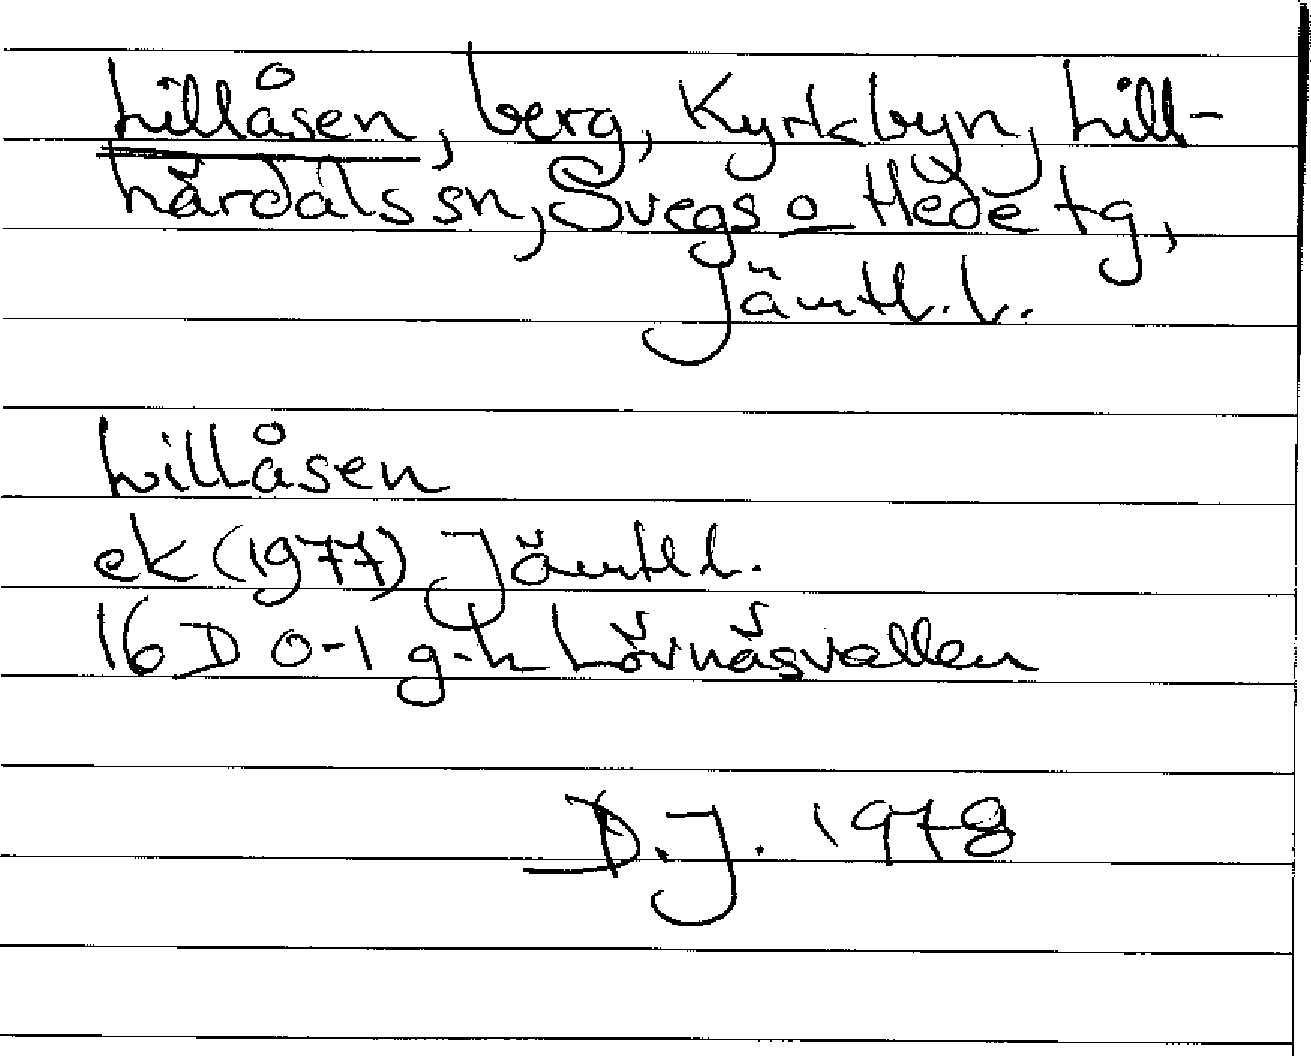 Lillåsen, berg, Kyrkbyn, Lill-
härdals sn, Svegs o Hede tg,
Jämtl. l.
Lillåsen
ek (1977) Jämtl l.
16 D 0-1 g-h Lövnäsvallen
D.J. 1978